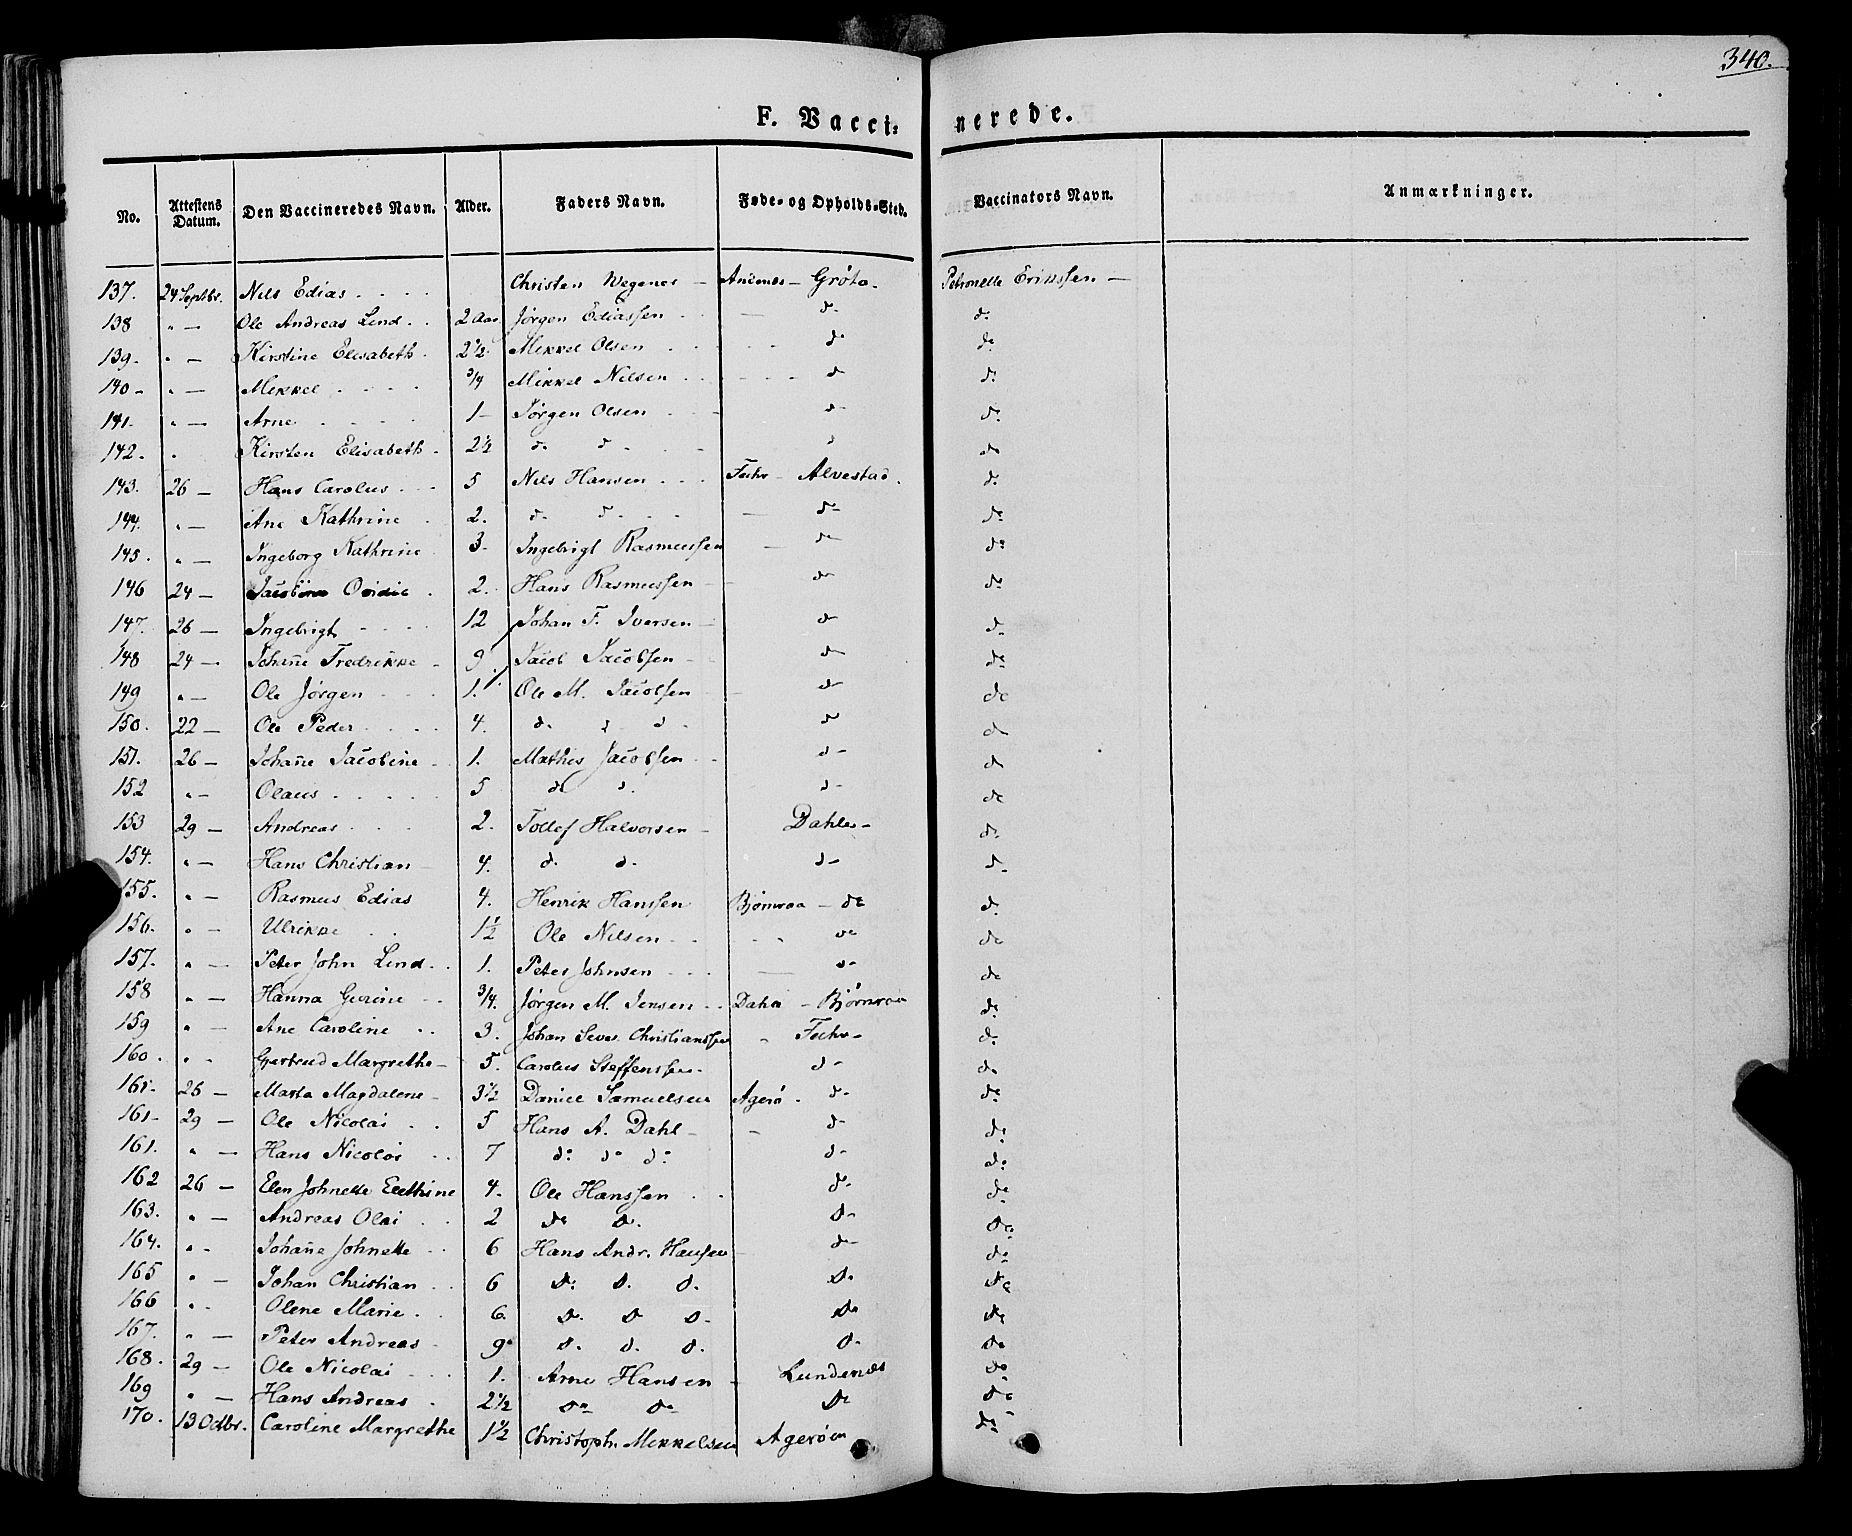 340.
F. Vacci: nerede.
No. Attestens Datum. Den Vaccineredes Navn. Alder. Faders Navn. Føde- og Opholds-Sted. Vaccinators Navn. Anmærkninger.
137. 24 Septbr. Nils Edias Christen Wegener Grøta. Petronelle Erikssen
138 " — Ole Andreas Lind 2 Aar Jørgen Ediassen — do d:
139. " — Kirstine Elisabeth 2½ Mikkel Olsen do do
140 " — Mikkel 3/4 Mikkel Nilsen d d:
141. " — Arne 1 Jørgen Olsen d d:
142. " Kirsten Elisabeth 2½ d. d. d d
143. 26 — Hans Carolus 5 Nils Hansen Alvestad. d.
144. " — Ane Kathrine 2. d. d. d d:
145. " — Ingeborg Kathrine 3. Ingebrigt Rasmussen d do
146 24 — 2. Hans Rasmussen d d:
147. 26 — Ingebrigt 12 Johan F. Iversen d d.
148 24 — Johañe Fredrikke 9 Jacob Jacobsen d do
149 " — Ole Jørgen 1. Ole M. Jacobsen d do
150. 22 — Ole Peder 4. d. d d d d
151. 26 — Johañe Jacobine 1. Mathis Jacobsen d d
152 " — Olaus 5 do d. d do
153 29 — Andreas 2. Tollef Halvorsen Dahle d.
154. " — Hans Christian 4. d. d. d d.
155. " — Rasmus Edias 4. Henrik Hanssen Bjørnraa — do d.
156. " — Ulrikke 1½ Ole Nilsen do do
157. " — Peter John Lind 1. Peter Johnsen — d do
158 " — Hanna 3/4. Jørgen M. Jensen Bjørnraa d:
159 " — Ane Caroline 3. Johan Sever. Christianssen d.
160. " Gjertrud Margrethe 5. Carolus Steffenssen d d.
161. 26 — Marta Magdalene 3½ Daniel Samuelsen Agerø d. d:
161 29 — Ole Nicolai 5 Hans A. Dahl — d d:
161. " — Hans Nicolai 7 d: do d: d d:
162 26 — Elen Johnette 4. Ole Hanssen d. do
163. " — Andreas Olai 2 do d. d Do
164. " Johañe Johnette 6 Hans Andr. Hansen d do
165 " — Johan Christian 6 D: D. D. D. Do
166 " Olene Marie 6 D. D D. Do Do
167. " — Peter Andreas 9 D. D. D. D. Do
168. 29 — Ole Nicolai 1. Arne Hansen Lundenes Do
169 " — Hans Andreas 2½ Do Do Do Do
170. 13 Octbr. Caroline Margrethe 1½ Christoph. Mikkelsen Agerøen do